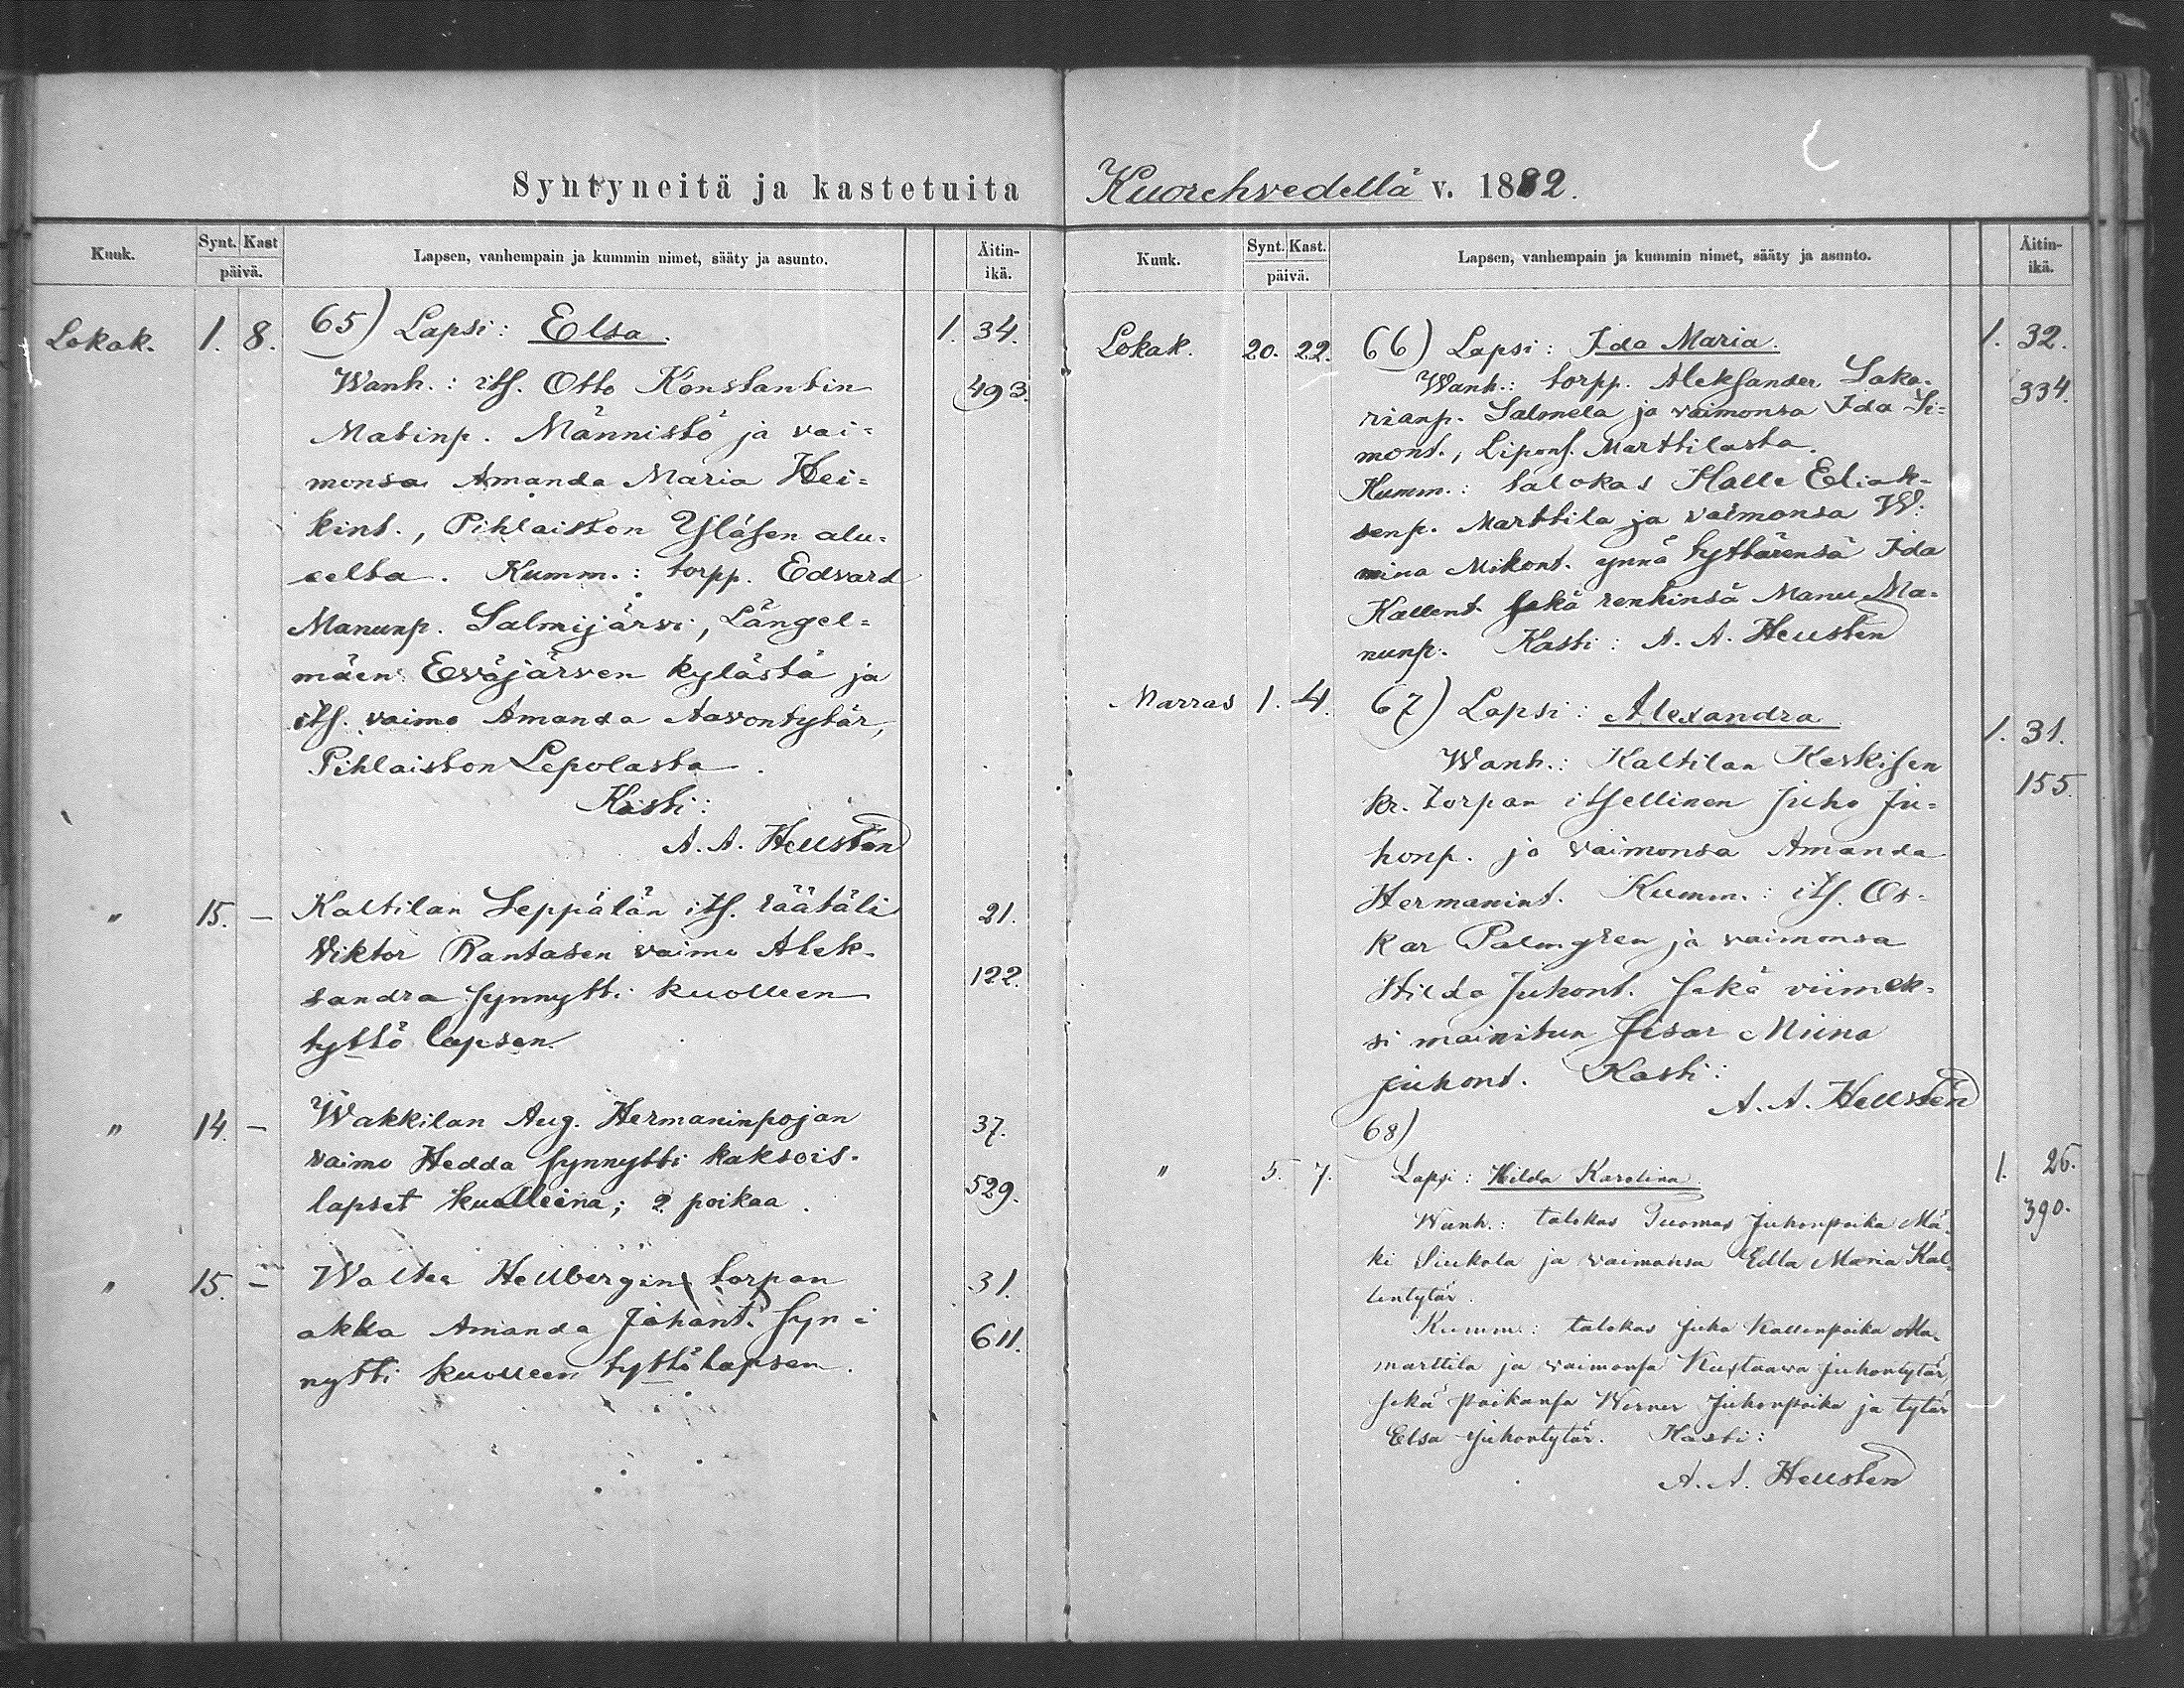 Syntyneitä ja kastetuita
Kuuk.
Synt. Kast
päivä.
Lapsen, vanhempain ja kummin nimet, sääty ja asunto.
Äitin-
ikä.
Lokak. 1. 8. 65) Lapsi: Elsa. 1. 34.
Wanh.: its. Otto Konstantin 493.
Matinp. Männistö ja vai-
monsa Amanda Maria Hei-
kint., Pihlaiston Yläsen alu-
eelta. Kumm.: torpp. Edvard
Manunp. Salmijärvi, Längel-
mäen Eväjärven kylästä ja
its. vaimo Amanda Aavontytär,
Pihlaiston Lepolasta.
Kasti:
A. A. Hellstén
" 15. – Kaltilan Seppälän its. räätäli 21.
Viktor Rantasen vaimo Alek-
sandra synnytti kuolleen 122.
tyttö lapsen.
" 14. – Wakkilan Aug. Hermaninpojan 37.
vaimo Hedda synnytti kaksois-
lapset kuolleina; 2 poikaa. 529.
" 15. – Waltea Hellbergin torpan 31.
akka Amanda Johant. syn- 611.
nytti kuolleen tyttö lapsen.
Kuorehvedellä v. 1882.
Kuuk.
Synt. Kast.
päivä.
Lapsen, vanhempain ja kummin nimet, sääty ja asunto.
Äitin-
ikä.
Lokak. 20. 22. 66) Lapsi: Ida Maria. 1. 32.
Wanh.: torpp. Aleksander Saka- 334.
rianp. Salmela ja vaimonsa Ida Si-
mont., Lipons. Marttilasta.
Kumm.: talokas Kalle Eliak-
senp. Marttila ja vaimonsa W:
mina Mikont. ynnä tyttärensä Ida
Kallent. sekä renkinsä Manu Ma-
nunp. Kasti: A. A. Hellstén
Marras 1. 4. 67) Lapsi: Alexandra 1. 31.
Wanh.: Kaltilan Keskisen 155.
kr. torpan itsellinen Juho Ju-
honp. ja vaimonsa Amanda
Hermanint. Kumm.: its. Os-
kar Palmgren ja vaimonsa
Hilda Juhont. sekä viimek-
si mainitun sisar Miina
Juhont. Kasti:
A. A. Hellstén
68)
" 5. 7. Lapsi: Hilda Karolina 1. 26.
Wanh.: talokas Tuomas Juhonpoika Mä- 390.
ki Siukola ja vaimonsa Edla Maria Kal-
lentytär.
Kumm.: talokas Juho Kallenpoika Ala-
marttila ja vaimonsa Kustaava Juhontytär
sekä poikansa Werner Juhonpoika ja tytär
Elsa Juhontytär. Kasti:
A. A. Hellstén